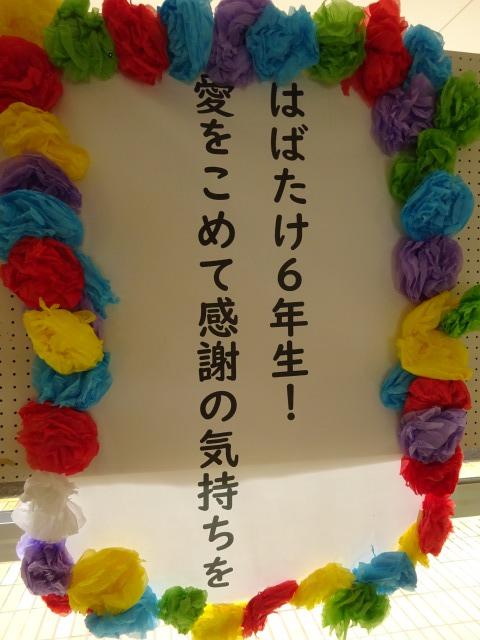 はばたけ6年生！
愛をこめて感謝の気持ちを